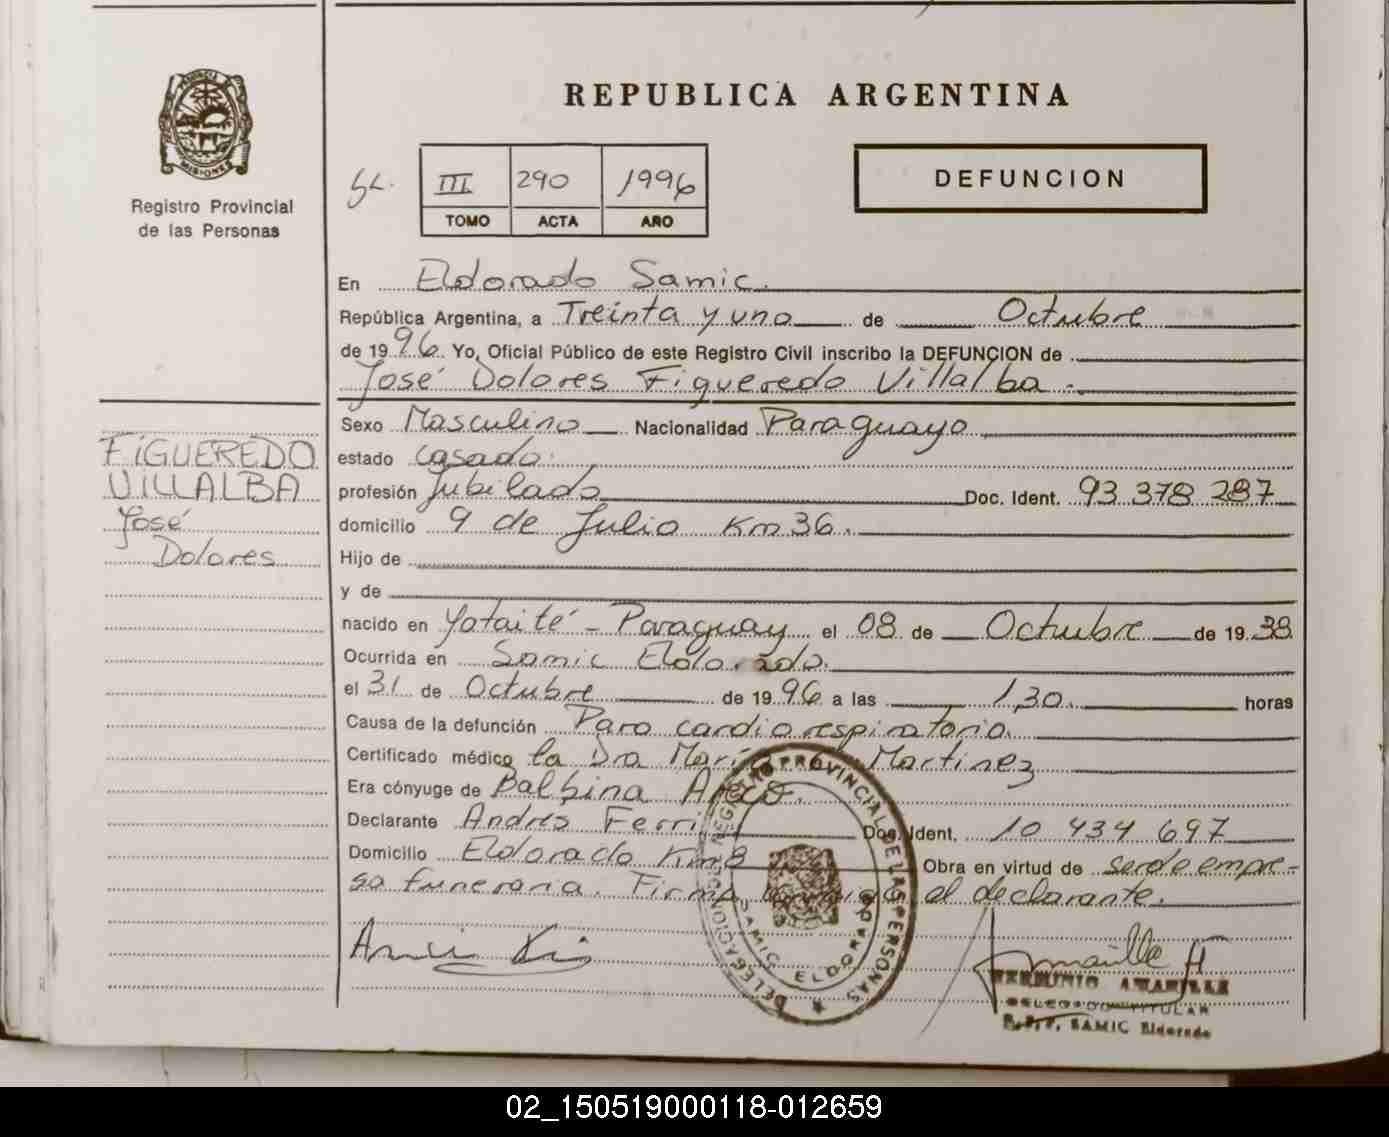 PROVINCIA DE
MISIONES
Registro Provincial
de las Personas
REPUBLICA ARGENTINA
III 290 1996
TOMO ACTA AÑO
DEFUNCION
En Eldorado Samic.
República Argentina, a Treinta y uno de Octubre
de 1996. Yo, Oficial Público de este Registro Civil inscribo la DEFUNCION de
José Dolores Figueredo Villalba.
Sexo Masculino Nacionalidad Paraguayo
estado Casado.
profesión Jubilado Doc. Ident. 93 378 287
domicilio 9 de Julio Km 36.
Hijo de
y de
nacido en Yataité - Paraguay el 08 de Octubre de 1938
Ocurrida en Samic Eldorado.
el 31 de Octubre de 1996 a las 1,30. horas
Causa de la defunción Paro cardio respiratorio.
Certificado médico la Dra Martinez
Era cónyuge de Balbina
Declarante Andrés Ferri Doc. Ident. 10 434 697
Domicilio Eldorado Km 8 Obra en virtud de ser de empre-
sa funeraria. Firma el declarante.
FIGUEREDO
VILLALBA
José
Dolores
DELEGACION REGISTRO PROVINCIAL DE LAS PERSONAS
SAMIC ELDORADO
HERMINIO AMARILLA
DELEGADO TITULAR
R.P.P. SAMIC Eldorado
02_150519000118-012659